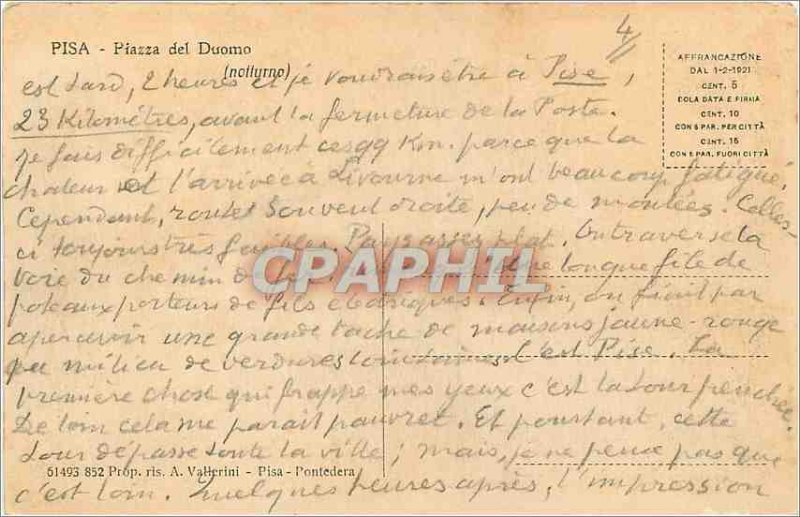 4/
PISA - Piazza del Duomo
(notturno)
AFFRANCAZIONE
DAL 1-2-1921
CENT. 5
COLA DATA E FIRMA
CENT. 10
CON 5 PAR. PER CITTÀ
CENT. 15
CON 5 PAR. FUORI CITTÀ
est tard, 2 heures et je voudrais être à Pise,
23 Kilomètres, avant la fermeture de la Poste.
Je fais difficilement ces 99 Km. parce que la
chaleur et l'arrivée à Livourne m'ont beaucoup fatigué.
Cependant, route souvent droite, peu de montées. Celles-
ci toujours très faibles. Pays assez plat. On traverse la
voie du chemin de longue file de
poteaux porteurs de fils électriques. Enfin, on finit par
apercevoir une grande tache de maisons jaune-rouge
au milieu de verdures lointaines. C'est Pise. La
première chose qui frappe mes yeux c'est la tour penchée.
De loin cela me paraît pauvret. Et pourtant, cette
tour dépasse toute la ville ; mais, je ne pense pas que
61493 852 Prop. ris. A. Vallerini - Pisa - Pontedera
c'est loin. Quelques heures après, l'impression
CPAPHIL